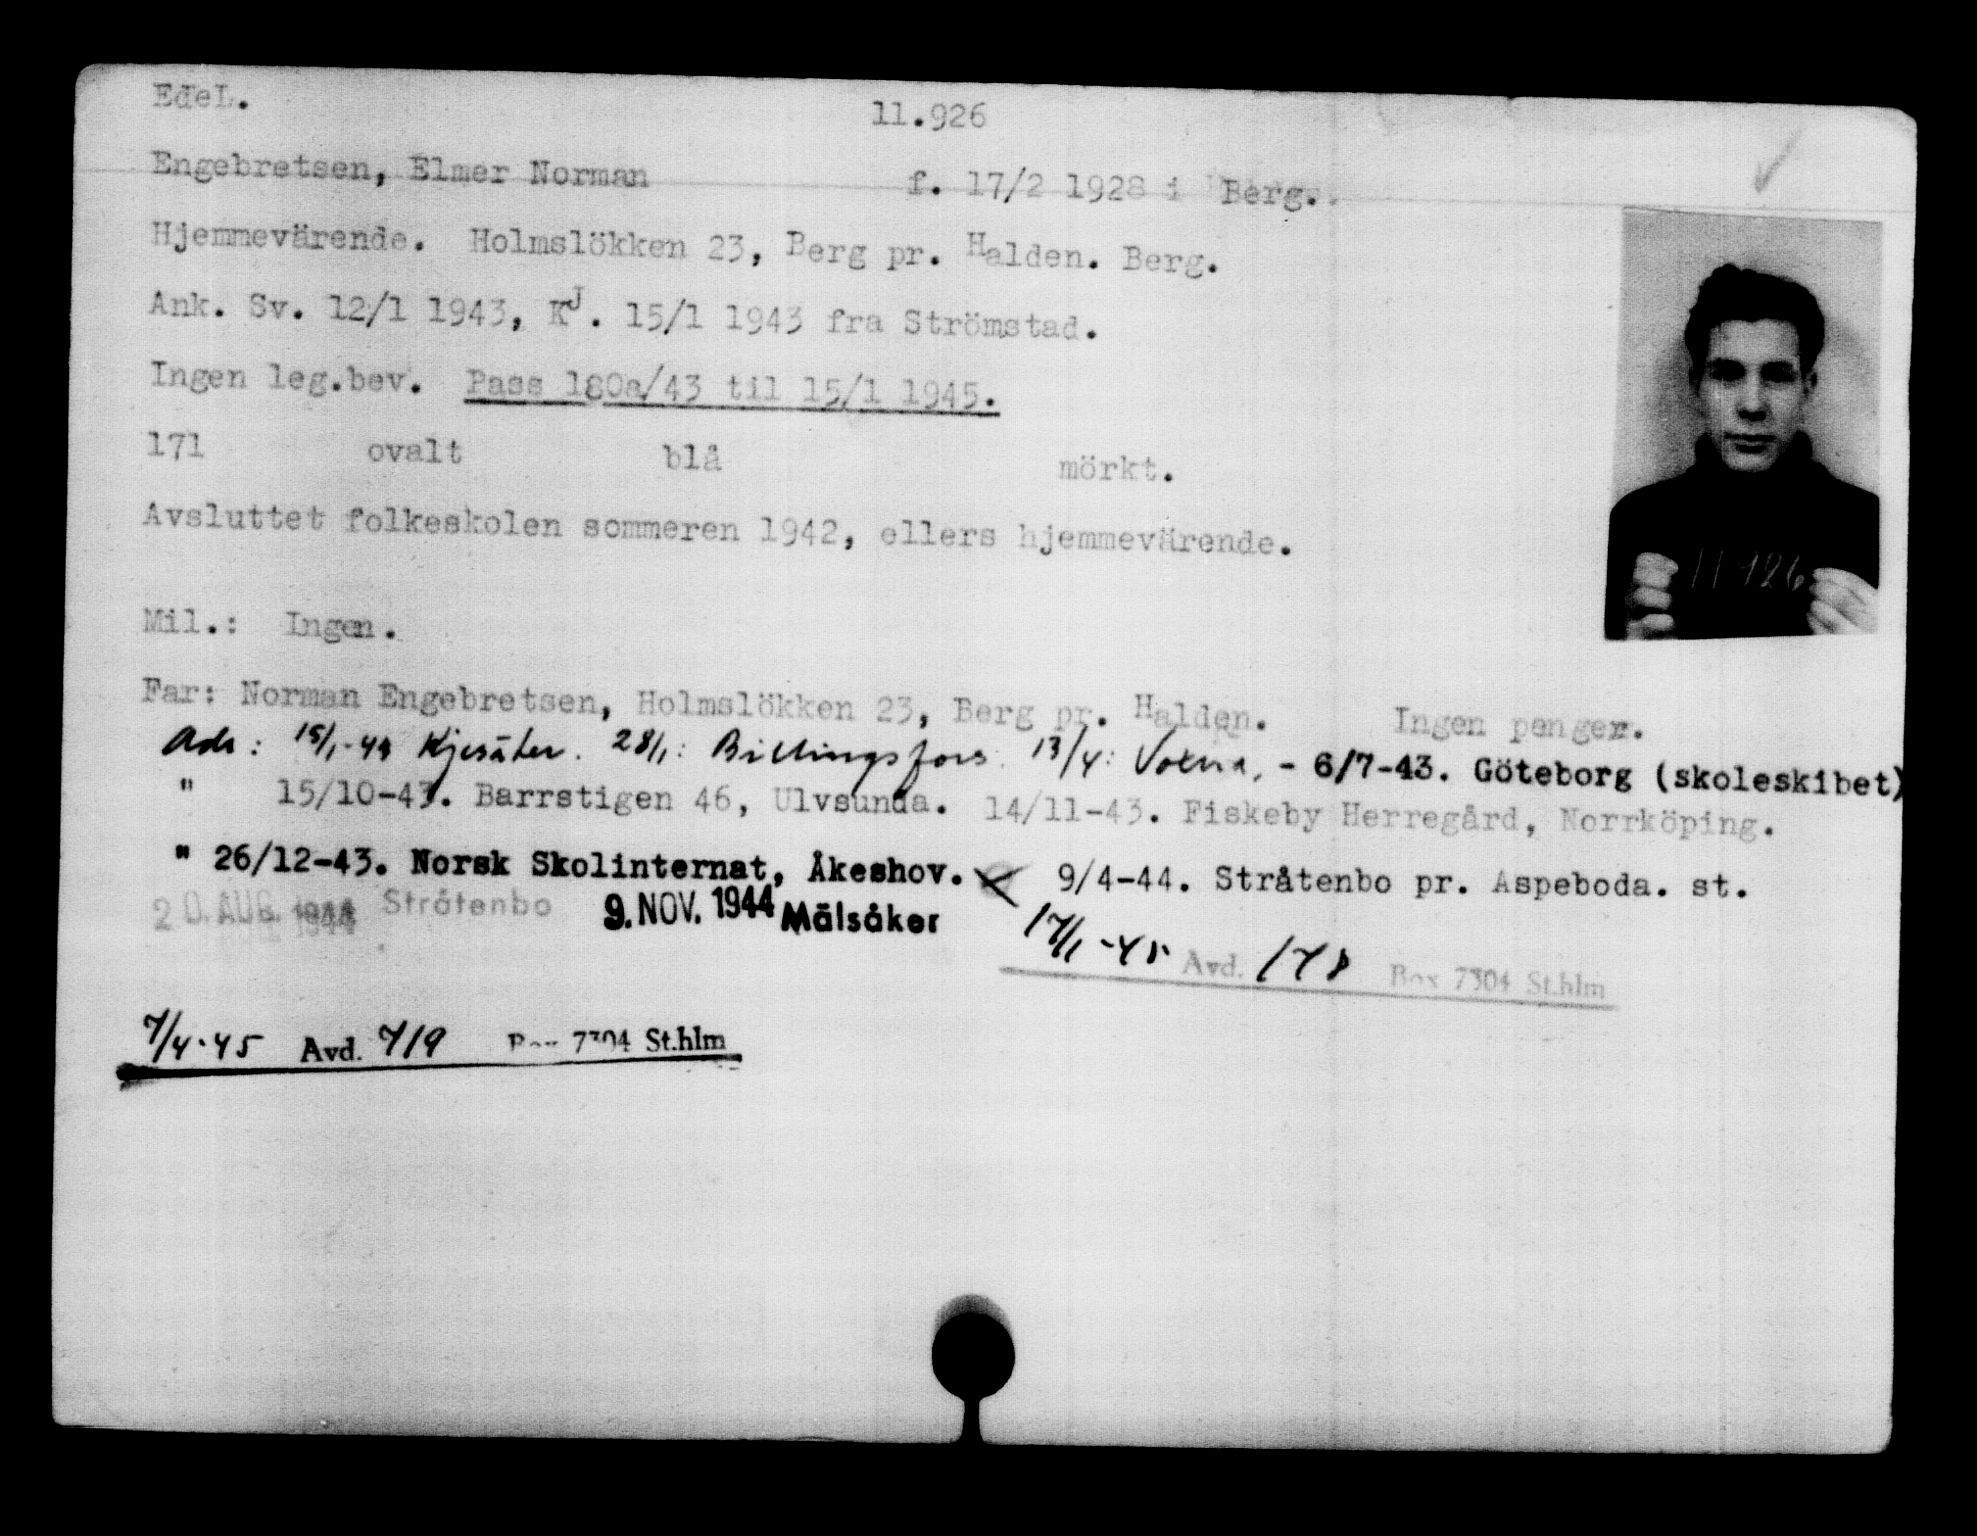 EdeL. 11.926
Engebretsen, Elmer Norman f. 17/2 1928 i Berg.
Hjemmevärende. Holmslökken 23, Berg pr. Halden. Berg.
Ank. Sv. 12/1 1943, KJ. 15/1 1943 fra Strömstad.
Ingen leg.bev. Pass 180a/43 til 15/1 1945.
171 ovalt blå mörkt.
Avsluttet folkeskolen sommeren 1942, ellers hjemmevärende.
11926
Mil.: Ingen.
Far: Norman Engebretsen, Holmslökken 23, Berg pr. Halden. Ingen penger.
Adr: 15/1-43 Kjesäter. 28/1: Billingsfors. 13/4: Voxna, - 6/7-43. Göteborg (skoleskibet)
" 15/10-43. Barrstigen 46, Ulvsunda. 14/11-43. Fiskeby Herregård, Norrköping.
" 26/12-43. Norsk Skolinternat, Åkeshov. 9/4-44. Stråtenbo pr. Aspeboda. st.
20. AUG. 1944 Stråtenbo 9. NOV. 1944 Mälsåker
17/1-45 Avd. 178 Box 7304 St.hlm
7/4-45 Avd. 719 Box 7304 St.hlm